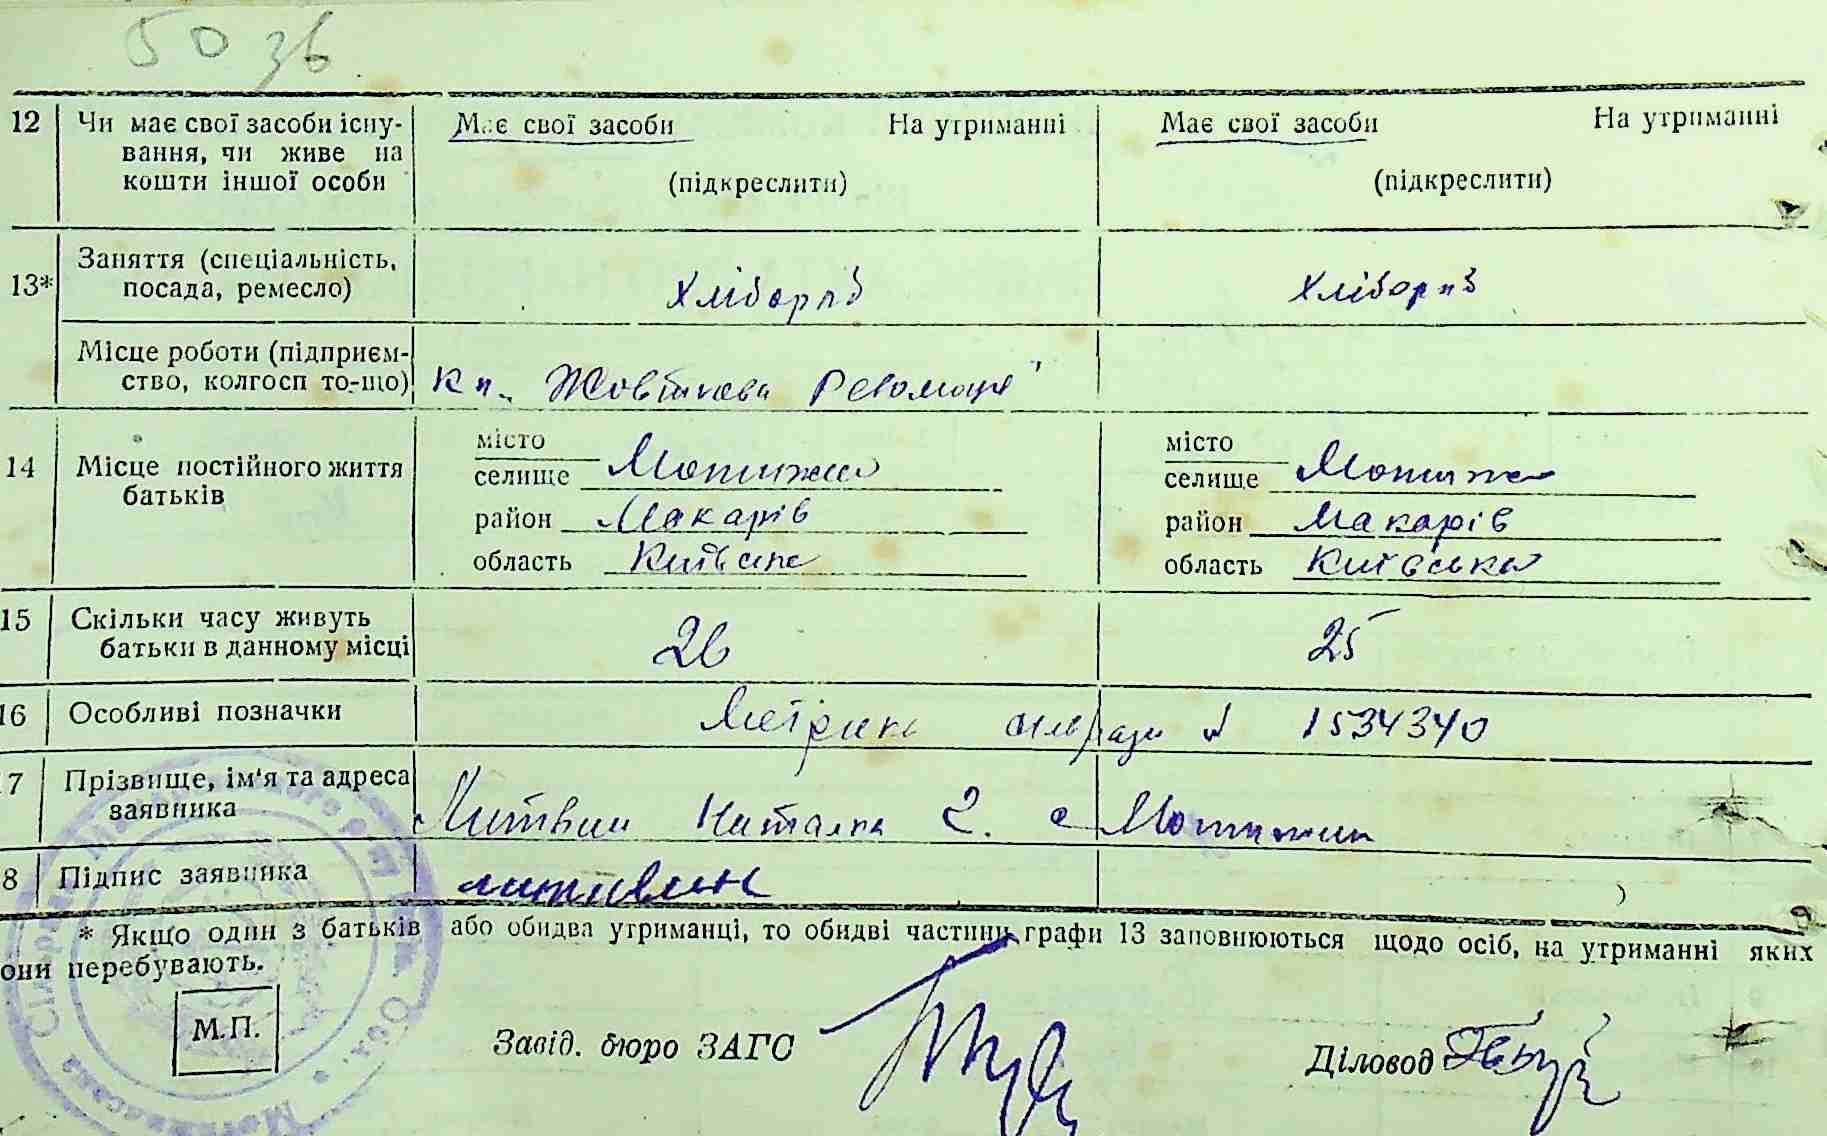 50 зв
12 Чи має свої засоби існу- Має свої засоби На утриманні Має свої засоби На утриманні
вання, чи живе на
кошти іншої особи (підкреслити) (підкреслити)
13* Заняття (спеціальність,
посада, ремесло) Хлібороб Хлібороб
Місце роботи (підприєм-
ство, колгосп то-що) Жовтнева Революція
14 Місце постійного життя
батьків
місто місто
селище Мотижин селище Мотижин
район Макарів район Макарів
область Київська область Київська
15 Скільки часу живуть
батьки в данному місці 26 25
16 Особливі позначки Метрика № 1534340
17 Прізвище, ім'я та адреса
заявника Литвин Наталка с Мотижин
8 Підпис заявника Литвин
* Якщо один з батьків або обидва утриманці, то обидві частини графи 13 заповнюються щодо осіб, на утриманні яких
они перебувають.
М.П.
Завід. бюро ЗАГС Діловод